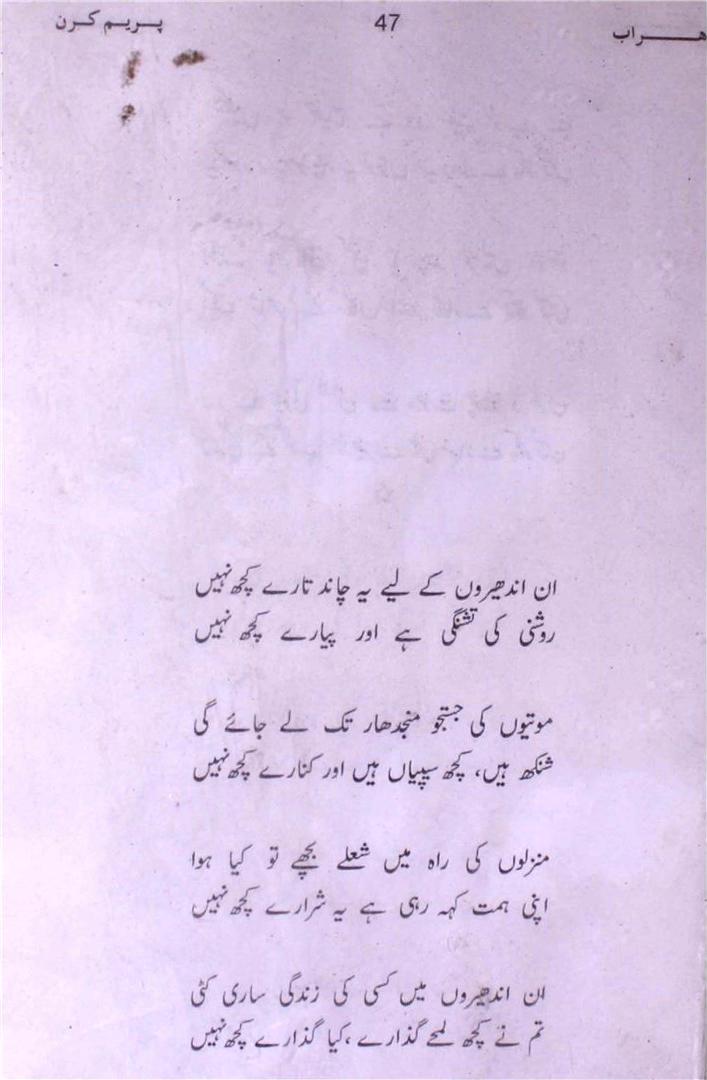 ھـــراب 47 پریم کرن
ان اندھیروں کے لیے یہ چاند تارے کچھ نہیں
روشنی کی تشنگی ہے اور پیارے کچھ نہیں
موتیوں کی جستجو منجدھار تک لے جائے گی
شنکھ ہیں، کچھ سیپیاں ہیں اور کنارے کچھ نہیں
منزلوں کی راہ میں شعلے بجھے تو کیا ہوا
اپنی ہمت کہہ رہی ہے یہ شرارے کچھ نہیں
ان اندھیروں میں کسی کی زندگی ساری کٹی
تم نے کچھ لمحے گذارے، کیا گذارے کچھ نہیں